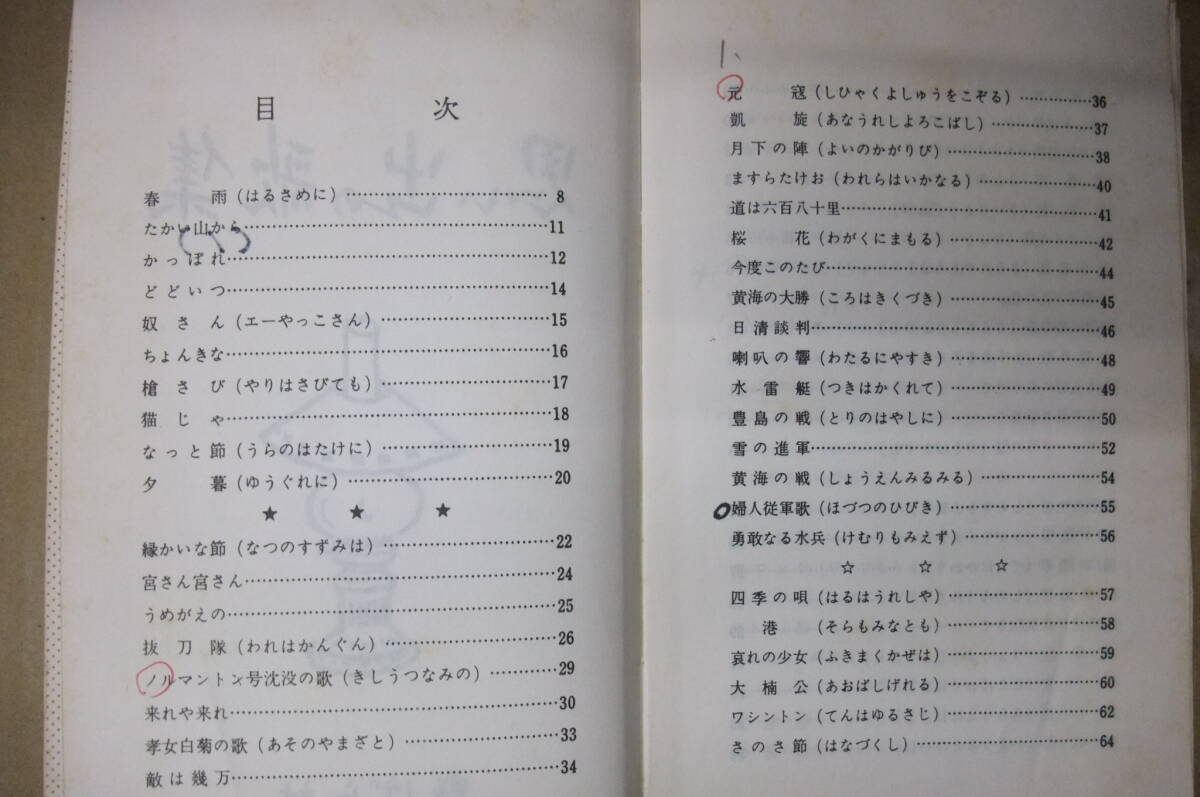 目次
春雨(はるさめに)…………………8
たかい山から…………………11
かっぽれ…………………12
どどいつ…………………14
奴さん(エーやっこさん)…………………15
ちょんきな…………………16
槍さび(やりはさびても)…………………17
猫じゃ…………………18
なっと節(うらのはたけに)…………………19
夕暮(ゆうぐれに)…………………20
★ ★ ★
縁かいな節(なつのすずみは)…………………22
宮さん宮さん…………………24
うめがえの…………………25
抜刀隊(われはかんぐん)…………………26
ノルマントン号沈没の歌(きしうつなみの)…………………29
来れや来れ…………………30
孝女白菊の歌(あそのやまざと)…………………33
敵は幾万…………………34
元寇(しひゃくよしゅうをこぞる)…………………36
凱旋(あなうれしよろこばし)…………………37
月下の陣(よいのかがりび)…………………38
ますらたけお(われらはいかなる)…………………40
道は六百八十里…………………41
桜花(わがくにまもる)…………………42
今度このたび…………………44
黄海の大勝(ころはきくづき)…………………45
日清談判…………………46
喇叭の響(わたるにやすき)…………………48
水雷艇(つきはかくれて)…………………49
豊島の戦(とりのはやしに)…………………50
雪の進軍…………………52
黄海の戦(しょうえんみるみる)…………………54
婦人従軍歌(ほづつのひびき)…………………55
勇敢なる水兵(けむりもみえず)…………………56
☆ ☆ ☆
四季の唄(はるはうれしや)…………………57
港(そらもみなとも)…………………58
哀れの少女(ふきまくかぜは)…………………59
大楠公(あおばしげれる)…………………60
ワシントン(てんはゆるさじ)…………………62
さのさ節(はなづくし)…………………64